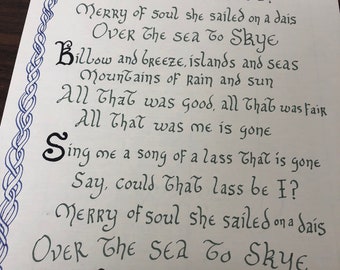 Merry of soul she sailed on a dais
Over the sea to Skye
Billow and breeze, islands and seas
Mountains of rain and sun
All that was good, all that was fair
All that was me is gone
Sing me a song of a lass that is gone
Say, could that lass be I?
Merry of soul she sailed on a dais
Over the sea to Skye